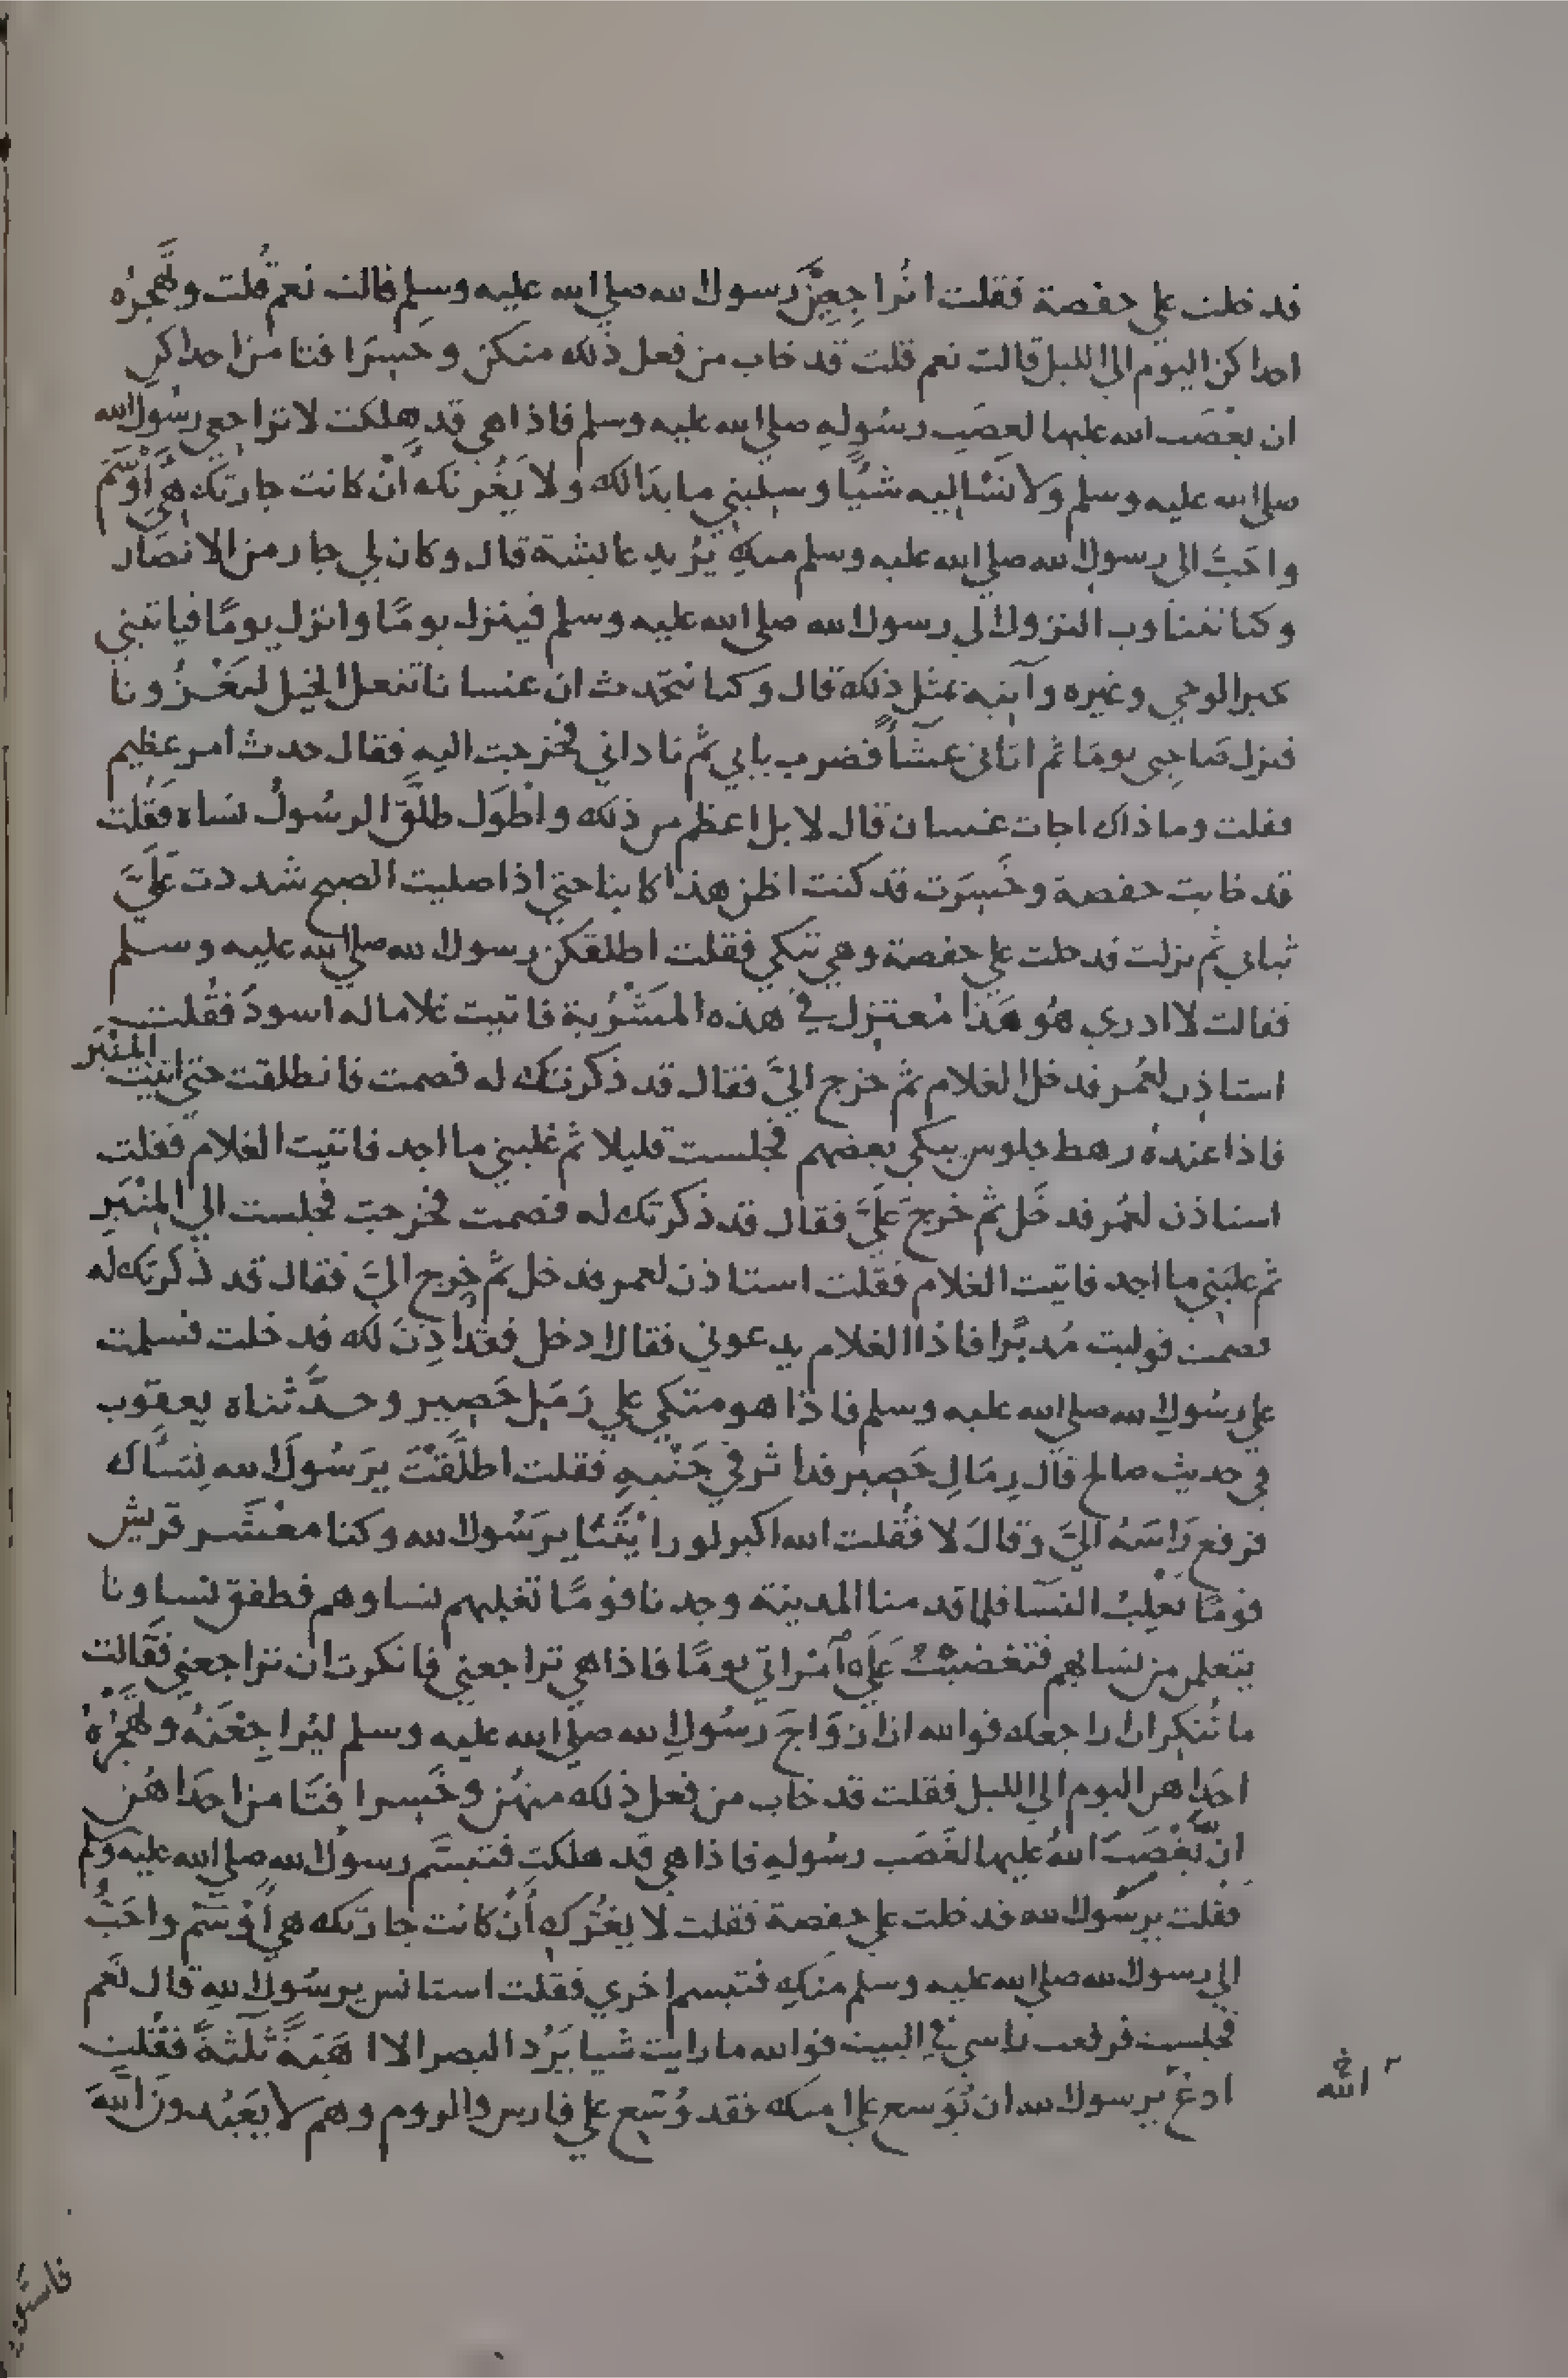 فدخلت علي حفصة فقلت اتُراجِعِنَّ رسول الله صلي الله عليه وسلم قالت نعم قُلت وتَهجُرُه
احداكن اليوم الي الليل قالت نعم قلت قد خاب من فعل ذلك منكن وخَسِرَا فتامن احداكن
ان يغضَب الله عليها لغضَب رسُولهِ صلي الله عليه وسلم فاذا هي قد هلكت لا تراجعي رسُول الله
صلي الله عليه وسلم ولا تَسْاليه شيًا وسليني ما بدَا لك ولا يَغُرنك أنْ كانت جارتك هيَ أوْسَمَ
واحَبّ الى رسول الله صلي الله عليه وسلم منكِ يُريد عايشة قال وكان لي جار من الانصَار
وكنا نتناوب النزول الي رسول الله صلي الله عليه وسلم فينزل يومًا وانزل يومًا فياتيني
بخبر الوحي وغيره وآتيه بمثل ذلك قال وكنا نتحّدث ان غسانا تنعل الخيل لتَغْزُونا
فنزل صَاحِبى يومَا ثم اتانى عشَآً فضرب بابي ثم ناداني فخرجت اليه فقال حدث أمر عظيم
فقلت وما ذاك اجات غسان قال لا بل اعظم من ذلك واطْوَل طلَّق الرسُولُ نسَاه فَقُلت
قد خابت حفصة وخَسِرَت قد كنت اظن هذا كاينا حتي اذا صليت الصبح شددت عَلَيَّ
ثيابي ثم نزلت فدخلت علي حفصة وهي تبكي فقلت اطلقكن رسول الله صلي الله عليه وسلم
فقالت لا ادري هُو هَذا مُعتزِل في هذه المَشْرُبة فاتيت غلاما له اسودَ فقُلت
استاذِن لعُمر فدخل الغلام ثم خرج اليَّ فقال قد ذكرتك له فصمت فانطلقت حتي اتيت المنْبَر
فاذا عندهُ رهط جلوس يبكي بعضهم فجلست قليلا ثم غلبني ما اجد فاتيت الغلام فقلت
استاذن لعُمر فدخَل ثم خرجَ عَلَيَّ فقال قد ذكرتك له فصمت فخرجت فجلست الي المِنْبَرِ
ثم غلبَني ما اجد فاتيت الغلام فقلت استاذن لعمر فدخل ثم خرج اليَّ فقال قد ذكرتك له
فصمت فوليت مُدبرًا فاذا الغلام يدعوني فقال ادخل فقد اذِنَ لك فدخلت فسلمت
علي رسُول الله صلي الله عليه وسلم فاذا هو متكي علي رَمَلِ حَصِير وحدَّثناه يعقوب
في حديث صالح قال رِمَالِ حَصِير قد اثر في جَنْبِهِ فقلت اطلَّقْتَ يرَسُولَ الله نِسَآَك
فرفع رَاسَهُ اليَّ وقالَ لا فقُلت الله اكبر لو رايْتَنَا يرَسُول الله وكنا معْشَر قريش
قومًا نغلِبُ النسَآ فلما قدمنا المدينة وجدنا قومًا تغلبهم نساوهم فطفق نساونا
يتعلمن من نسايهم فتغضبْتُ عَلَي آمْراتي يومًا فاذا هي تراجعني فانكرت ان تراجعني فقَالت
ما تُنكِر ان اراجعك فوالله ان ازوَاجَ رسُولِ الله صلَّي الله عليه وسلم ليُراجِعْنَهُ وتَهْجُرُهُ
احَدَاهن اليوم الي الليل فقلت قد خاب من فعل ذلك منهُن وخَسِرا فتَامن احدَاهُن
ان يغْضَبَ اللهُ عليها لغَضَب رسُولهِ فاذا هي قد هلكت فتبسَّم رسول الله صلي الله عليه وسلم
فقلت يرسُول الله فدخلت علي حفصة فقلت لا يغُرّكِ أنْ كانت جارتك هي أوْسَم واحَبُّ
الي رسول الله صلي الله عليه وسلم منكِ فتبسم اخري فقلت استانس يرسُول اللهِ قال نَعَم
فجلست فرفعت راسي في البيت فوالله ما رايت شيا يَرُد البصر الا اهَبَةً ثلثةً فقُلت
ادعُ يرسول الله ان يُوَسع علي امتك فقد وُسّع علي فارس والروم وهم لا يَعبُدونَ اللهَ
الله
فاستوي